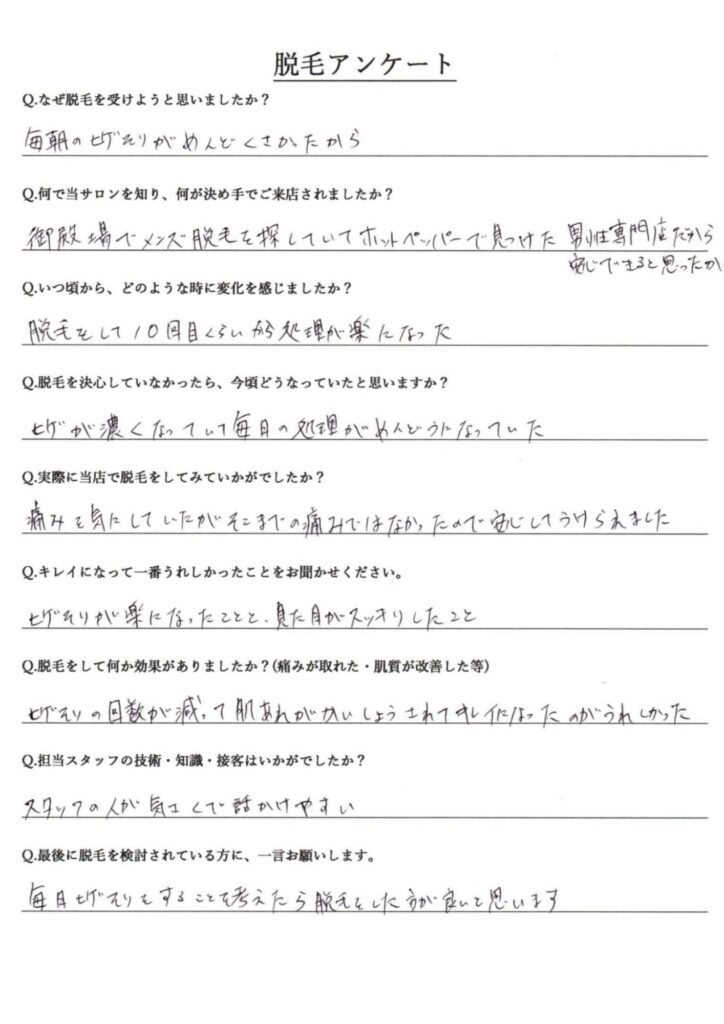 脱毛アンケート
Q.なぜ脱毛を受けようと思いましたか？
毎朝のヒゲそりがめんどくさかたから
Q.何で当サロンを知り、何が決め手でご来店されましたか？
御殿場でメンズ脱毛を探していてホットペッパーで見つけた 男性専門店だから
安心できると思ったか
Q.いつ頃から、どのような時に変化を感じましたか？
脱毛をして10回目くらいから処理が楽になった
Q.脱毛を決心していなかったら、今頃どうなっていたと思いますか？
ヒゲが濃くなっていて毎日の処理がめんどうになっていた
Q.実際に当店で脱毛をしてみていかがでしたか？
痛みを気にしていたがそこまでの痛みではなかったので安心してうけられました
Q.キレイになって一番うれしかったことをお聞かせください。
ヒゲそりが楽になったことと、見た目がスッキリしたこと
Q.脱毛をして何か効果がありましたか？(痛みが取れた・肌質が改善した等)
ヒゲそりの回数が減って肌あれがかいしょうされてキレイになったのがうれしかった
Q.担当スタッフの技術・知識・接客はいかがでしたか？
スタッフの人が気さくで話かけやすい
Q.最後に脱毛を検討されている方に、一言お願いします。
毎日ヒゲそりをすることを考えたら脱毛をした方が良いと思います